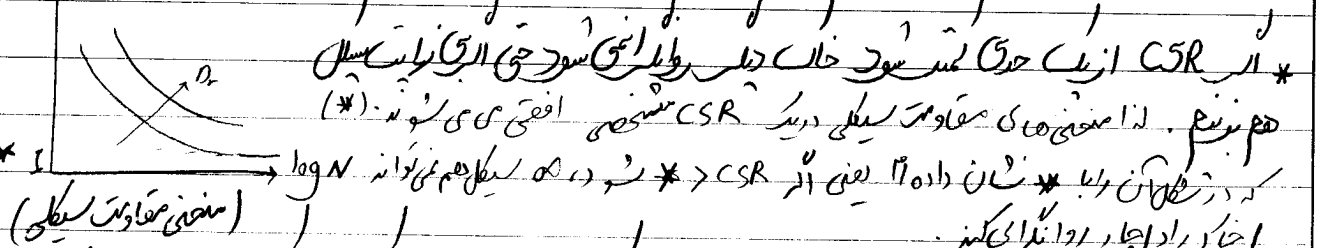 * اگر CSR از یک حدی کمتر شود خاک دیگر روانگرا نمی شود حتی اگر بی نهایت سیکل
هم بزنیم. لذا منحنی های مقاومت سیکلی در یک CSR مشخصی افقی می شوند. (*)
که در شکل آن را با * نشان داده ام یعنی اگر CSR < * شود، ∞ سیکل هم نمی تواند
خاک را دچار روانگرایی کند.
Dr
* I
log N
(منحنی مقاومت سیکلی)